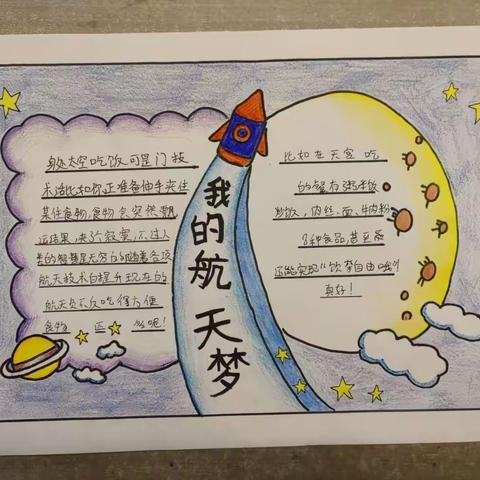 我的航天梦
太空吃饭可是门技
术活比如你正准备伸手夹住
某住食物,食物会突然飘
运结果,夹了个寂寞,不过人
类的智慧是无穷的随着
航天技术的提升现在的
航天员不仅吃得方便
食物 还 呢!
比如在天宫吃
的
炒饭,肉丝、面、牛肉粉
种食品,甚至
还能实现"饮茶自由哦"
真好!